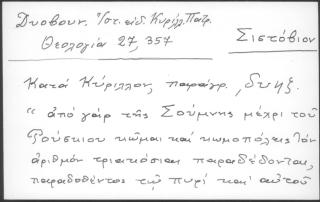 Δυοβουν. Ἱστ. εἰδ. Κυρίλλ. Πατρ.
Θεολογία 27, 357
Σιστόβιον
Κατά Κύριλλον, παράγρ. ,δυηξ.
"ἀπό γάρ τῆς Σούμνης μέχρι τοῦ
Ρουσκίου κῶμαι καί κωμοπόλεις τόν
ἀριθμόν τριακόσιαι παραδέδονται,
παραδοθέντος τῷ πυρί καί αὐτοῦ